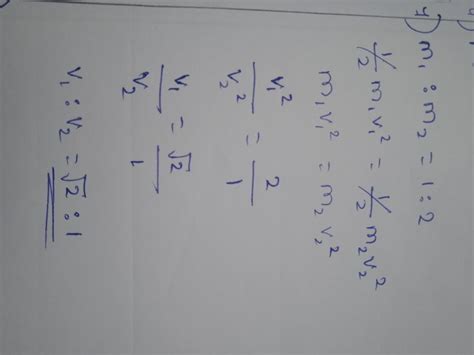 4) m₁ : m₂ = 1 : 2
1/2 m₁v₁² = 1/2 m₂v₂²
m₁v₁² = m₂v₂²
v₁²/v₂² = 2/1
v₁/v₂ = √2/1
v₁ : v₂ = √2 : 1